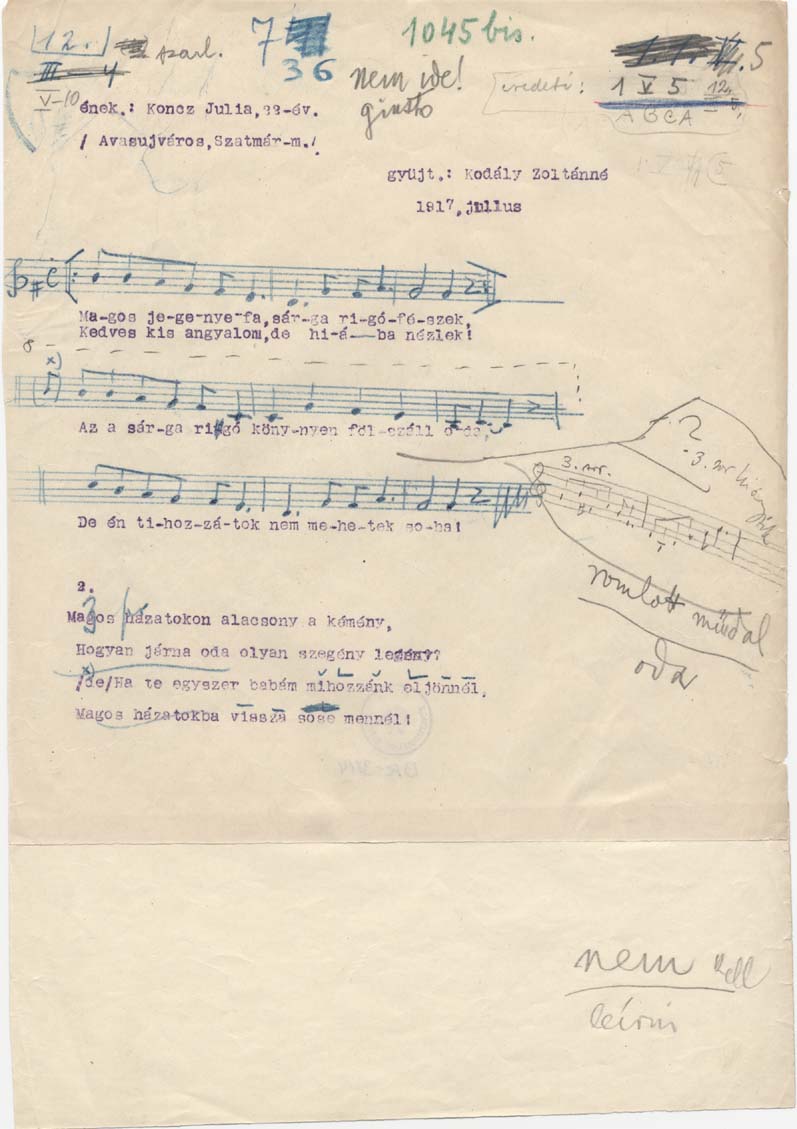 12. szarl. 7 1045 bis.
III-4 36 nem ide! 5
V-10 giusto eredeti: 1 V 5 12.
ének.: Koncz Julia, 22-év. A B C A
/ Avasujváros, Szatmár-m./
gyüjt.: Kodály Zoltánné
1917. julius
Ma-gos je-ge-nye-fa, sár-ga ri-gó-fé-szek,
Kedves kis angyalom, de hi-á--ba nézlek!
8
x)
Az a sár-ga rigó köny-nyen föl-száll o-da,
?
3. sor.
De én ti-hoz-zá-tok nem me-he-tek so-ha!
romlott műdal
oda
2.
3
Magos házatokon alacsony a kémény,
Hogyan járna oda olyan szegény legény?
x)
/de/Ha te egyszer babám mihozzánk eljönnél,
Magos házatokba vissza sose mennél!
nem kell
leírni